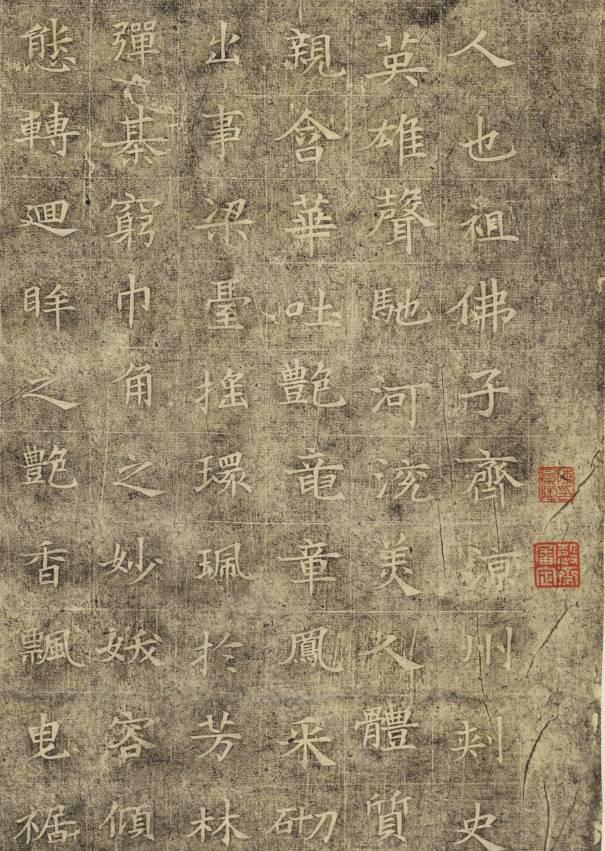 人也祖佛子齊涼州刾史
英雄聲馳河渷美人體質
親含華吐艷竜章鳳采砌
出事梁臺搖環珮於芳林
彈棊窮巾角之妙妖容傾
態轉迴眸之艷香飄曳裾